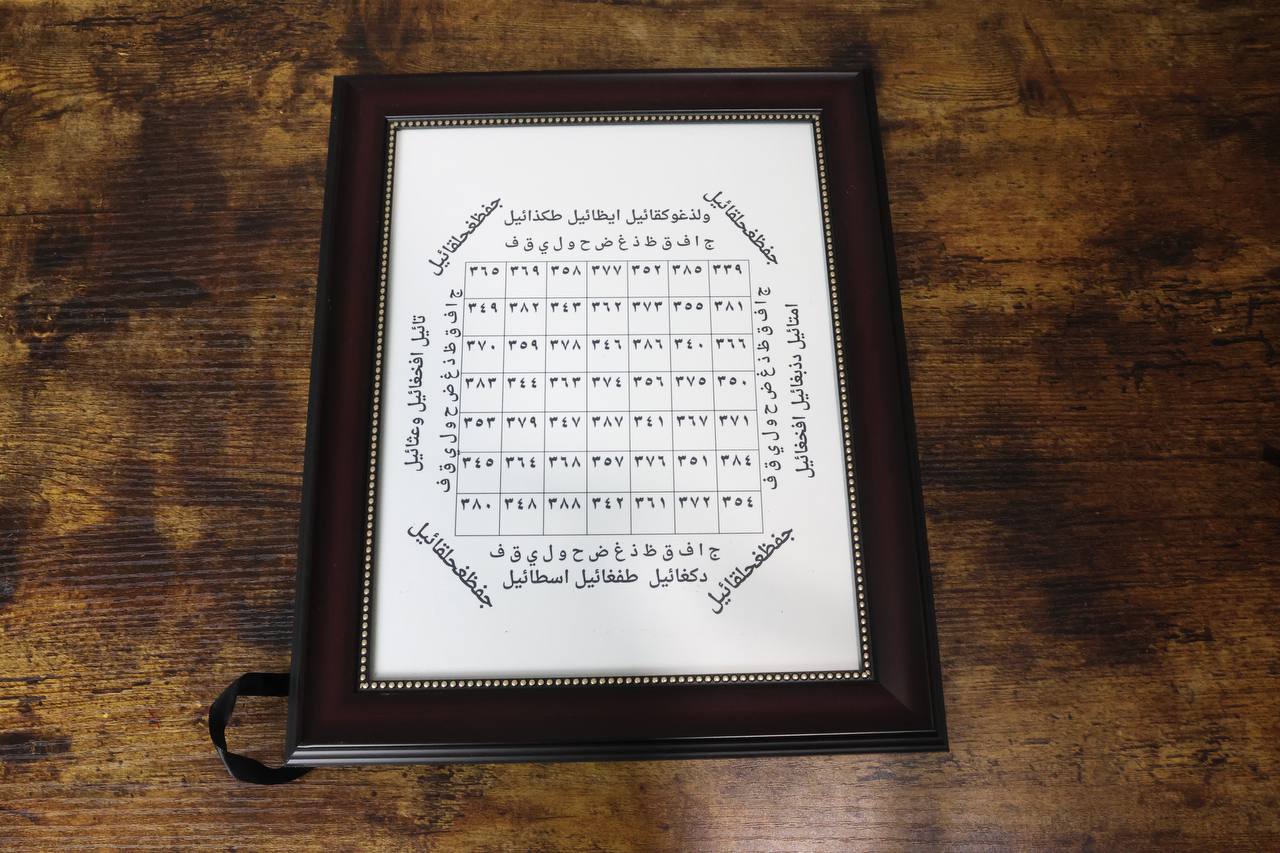 جفظغحلقائيل
ولذغوكقائيل ايظائيل طكذائيل
جفظغحلقائيل
ج ا ف ق ظ ذ غ ض ح و ل ي ق ف
امتائيل دذبغائيل افخغائيل
ج ا ف ق ظ ذ غ ض ح و ل ي ق ف
٣٣٩ ٣٨٥ ٣٥٢ ٣٧٧ ٣٥٨ ٣٦٩ ٣٦٥
٣٨١ ٣٥٥ ٣٧٣ ٣٦٢ ٣٤٣ ٣٨٢ ٣٤٩
٣٦٦ ٣٤٠ ٣٨٦ ٣٤٦ ٣٧٨ ٣٥٩ ٣٧٠
٣٥٠ ٣٧٥ ٣٥٦ ٣٧٤ ٣٦٣ ٣٤٤ ٣٨٣
٣٧١ ٣٦٧ ٣٤١ ٣٨٧ ٣٤٧ ٣٧٩ ٣٥٣
٣٨٤ ٣٥١ ٣٧٦ ٣٥٧ ٣٦٨ ٣٦٤ ٣٤٥
٣٥٤ ٣٧٢ ٣٦١ ٣٤٢ ٣٨٨ ٣٤٨ ٣٨٠
ج ا ف ق ظ ذ غ ض ح و ل ي ق ف
تائيل افخغائيل وعثائيل
ج ا ف ق ظ ذ غ ض ح و ل ي ق ف
جفظغحلقائيل
دكغائيل طفغائيل اسطائيل
جفظغحلقائيل